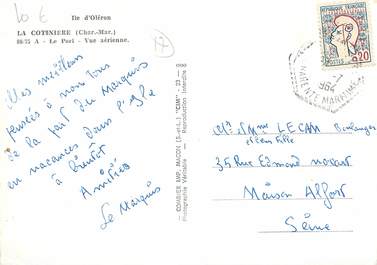 10 €
Ile d'Oléron
LA COTINIERE (Char.-Mar.)
88/75 A - Le Port - Vue aérienne.
Mes meilleurs
pensées à vous tous
de la part du Marquis
en vacances dans l'Ile
à bientôt
Amitiés
Le Marquis
COMBIER IMP. MACON (S.-et-L.) "CIM"
Photographie Véritable - Reproduction interdite
REPUBLIQUE FRANÇAISE
POSTES
0,20
CHARENTE MARITIME
1964
Mr et Mme LECAM Boulanger
et leur fille
35 Rue Edmond nocart
Maison Alfort
Seine